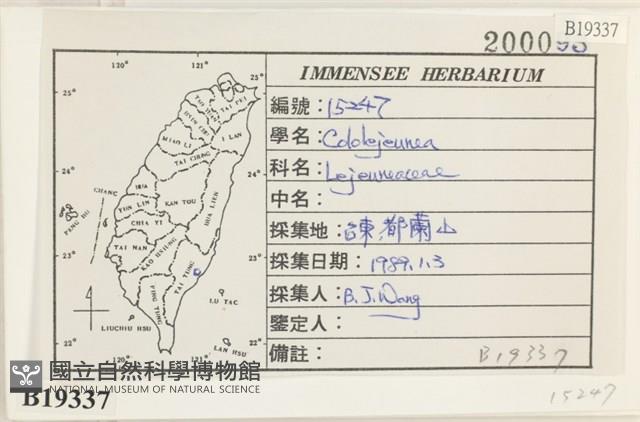 B19337
IMMENSEE HERBARIUM
編號：15247
學名：Cololejeunea
科名：Lejeuneaceae
中名：
採集地：台東，都蘭山
採集日期：1989.1.3
採集人：B.J.Wang
鑒定人：
備註：
B19337
15247
120°
121°
25°
25°
24°
24°
23°
23°
22°
22°
120°
121°
TAI PEI
I LAN
MIAO LI
TAI CHUNG
CHANG
HUA
YUN LIN
NAN TOU
HUA LIEN
PANG HU
CHIA YI
TAI NAN
KAO HSIUNG
TAI TUNG
PING TUNG
LU TAO
LIUCHIU HSU
LAN HSU
國立自然科學博物館
NATIONAL MUSEUM OF NATURAL SCIENCE
B19337